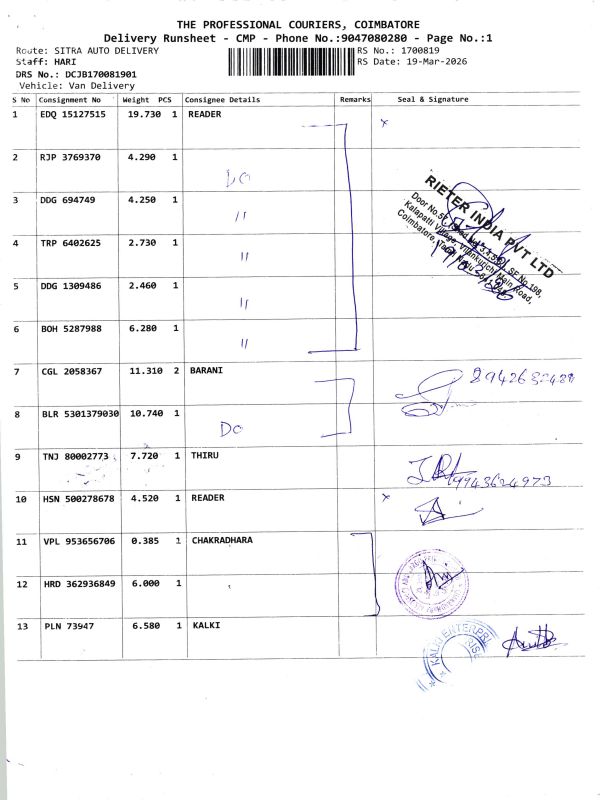 THE PROFESSIONAL COURIERS, COIMBATORE
Delivery Runsheet - CMP - Phone No.:9047080280 - Page No.:1
Route: SITRA AUTO DELIVERY
RS No.: 1700819
Staff: HARI
RS Date: 19-Mar-2026
DRS No.: DCJB170081901
Vehicle: Van Delivery
S No Consignment No Weight PCS Consignee Details Remarks Seal & Signature
1 EDQ 15127515 19.730 1 READER
2 RJP 3769370 4.290 1
DO
3 DDG 694749 4.250 1
〃
4 TRP 6402625 2.730 1
〃
5 DDG 1309486 2.460 1
〃
6 BOH 5287988 6.280 1
〃
RIETER INDIA PVT LTD
Kalapatti Village, Vilankurichi Main Road,
7 CGL 2058367 11.310 2 BARANI
8 BLR 5301379030 10.740 1
DO
9 TNJ 80002773 7.720 1 THIRU
9943624973
10 HSN 500278678 4.520 1 READER
11 VPL 953656706 0.385 1 CHAKRADHARA
12 HRD 362936849 6.000 1
13 PLN 73947 6.580 1 KALKI
KALKI ENTERPRISE